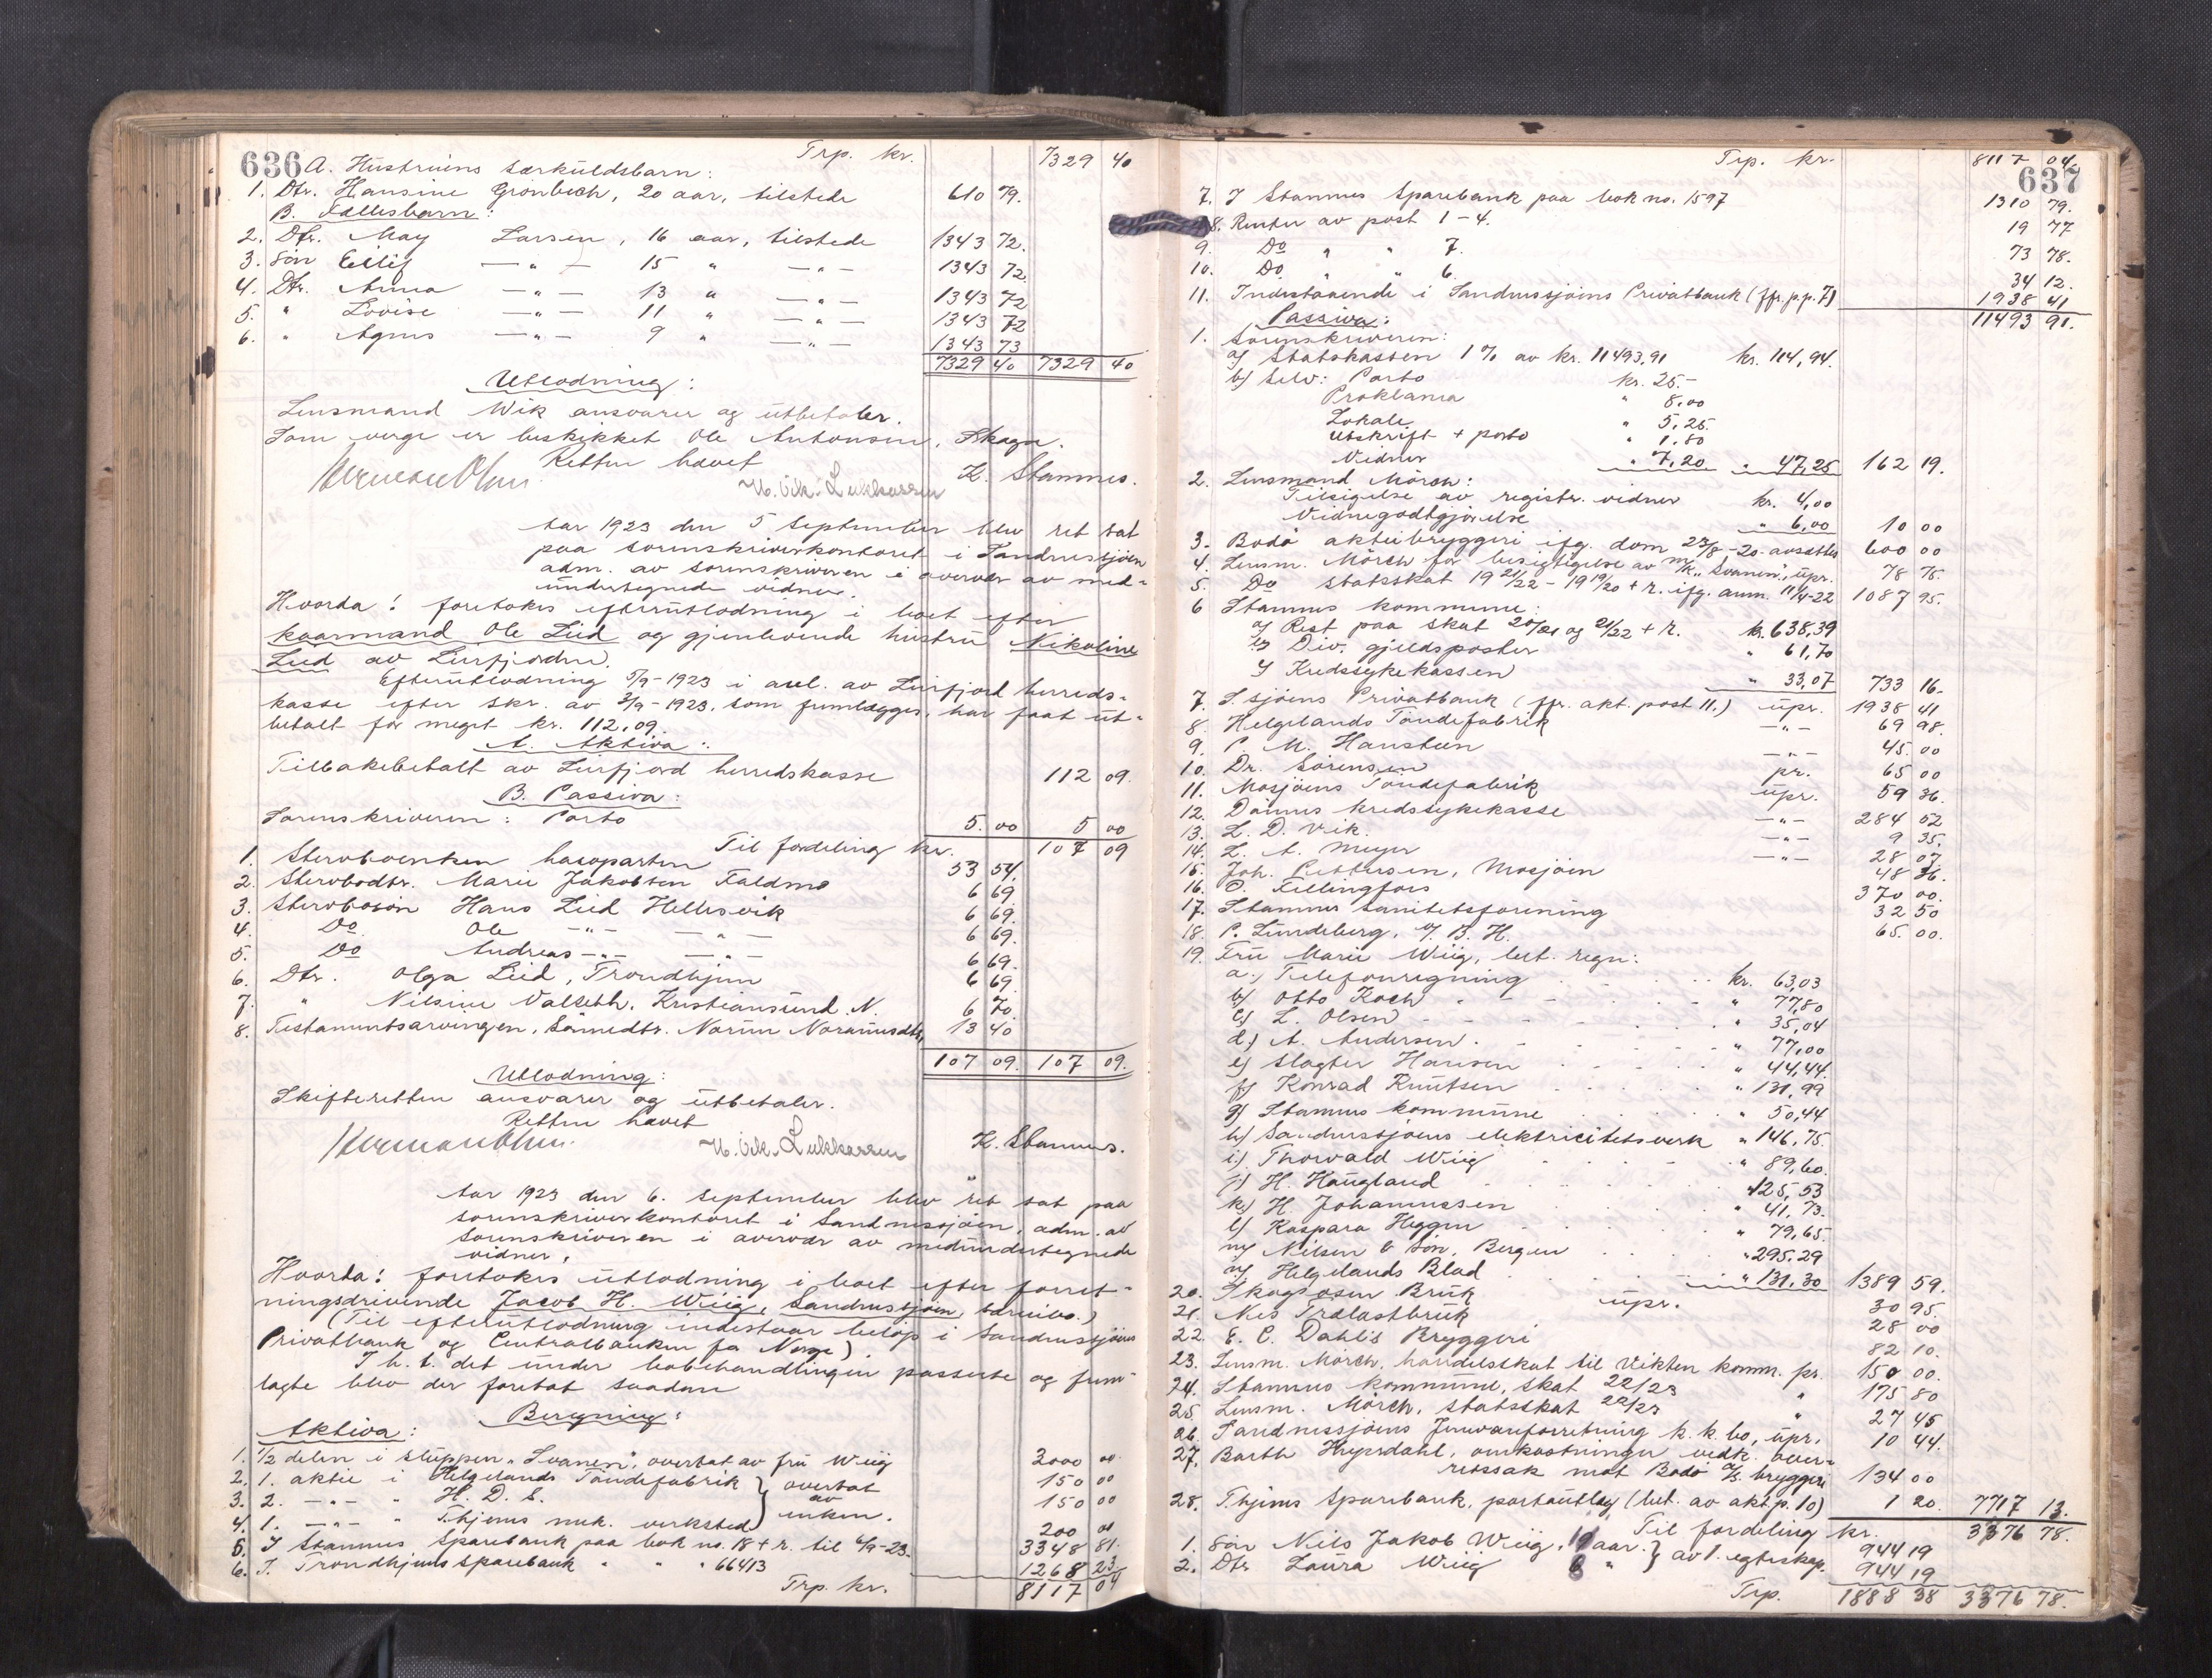 636
Trp. kr. 7329 40
A. Hustruens særkuldsbarn:
1. Dtr. Hansine Grönbech, 20 aar, tilstede 610 79.
B. Fællesbarn:
2. Dtr. May Larsen, 16 aar, tilstede 1343 72.
3. Sön Eilif —"— 15 " —"— 1343 72
4. Dtr. Anna —"— 13 " —"— 1343 72
5. " Lovise —"— 11 " —"— 1343 72
6. " Agnes —"— 9 " —"— 1343 73
7329 40 7329 40
Utlodning:
Lensmand Wik ansvarer og utbetaler.
Som verge er beskikket Ole Antonsen, Skaga.
Retten hævet
K. Stamnes.
Aar 1923 den 5 September blev ret sat
paa sorenskriverkontoret i Sandnessjöen
adm. av sorenskriveren i overvær av med-
undertegnede vidner.
Hvorda: foretokes efterutlodning i boet efter
kaarmand Ole Lied og gjenlevende hustru Nikoline
Lied av Leirfjorden.
Efterutlodning 5/9-1923 i anl. av Leirfjord herreds-
kasse efter skr. av 3/9-1923, som fremlægges, har faat ut-
betalt for meget kr. 112,09.
A. Aktiva:
Tilbakebetalt av Leirfjord herredskasse 112 09.
B. Passiva:
Sorenskriveren: Porto 5.00 5 00
Til fordeling kr. 107 09
1. Sterboenken havoparten 53 54.
2. Sterbodtr. Marie Jakobsen Faldmo 6 69
3. Sterbosön Hans Lied Hellesvik 6 69.
4. Do Ole —"— —"— 6 69.
5. Do Andreas —"— —"— 6 69.
6. Dtr. Olga Lied, Trondhjem 6 69.
7. " Nilsine Valseth, Kristiansund N. 6 70.
8. Testamentsarvingen, Samedtr. Noren Noramusdtr, 13 40
107 09. 107 09.
Utlodning:
Skifteretten ansvarer og utbetaler.
Retten hævet
K. Stamnes.
Aar 1923 den 6. September blev ret sat paa
sorenskriverkontoret i Sandnessjöen, adm. av
Sorenskriveren i overvær av medundertegnede
vidner.
Hvorda: foretokes utlodning i boet efter forret-
ningsdrivende Jacob H. Wiig, Sandnessjöen,
(Til efterutlodning indestaar belöp i Sandnessjöens
Privatbank og Centralbanken for Norge).
I h. t. det under bobehandlingen passerte og frem-
lagte blev der foretat saadan
Beregning:
Aktiva:
1. 1/2 delen i sluppen „Svanen", overtat av fru Wiig 2000 00.
2. 1. aktie i Helgelands Töndefabrik } overtat 150 00
3. 2. —"— " H. D. S. av 150 00
4. 1. —"— " Thjems mek. verksted } enken. 200 00
5. I Stamnes Sparebank paa bok no. 18 + r. til 6/9-23. 3348 81.
6. I. Trondhjems Sparebank " " " 66413 1268 23
Trp. kr. 8117 04
637
Trp. kr. 8117 04.
7. I Stamnes Sparebank paa bok no. 1597 1310 79.
8. Renter av post 1-4. 19 77
9. Do " " 7. 73 78.
10. Do " " 6. 34 12.
11. Indestaaende i Sandnessjöens Privatbank (ffr. p.p. 7) 1938 41
11493 91.
Passiva:
1. Sorenskriveren:
a) Statskassen 1% av kr. 11493,91 kr. 114,94.
b) Selv: Porto kr. 25.-
Proklama " 8,00
Lokale " 5,25
Utskrift + porto " 1.80
Vidner " 7,20 " 47,25 162 19.
2. Lensmand Mörch:
Tilsigelse av registr. vidner kr. 4,00
Vidnegodtgjörelse " 6,00 10 00
3. Bodö aktiebryggeri ifg. dom 23/8-20. avsattes 600 00
4. Lensm. Mörch for besigtigelse av m/k „Svanen", upr. 78 75.
5. Do statsskat 1921/22 - 1919/20 + r. ifg. anm. 11/4-22 1087 95.
6 Stamnes kommune:
a) Rest paa skat 20/21 og 21/22 + r. kr. 638,39
b) Div. gjeldsposter " 61,70
c) Kredssykekassen " 33,07 733 16-
7. S.sjöens Privatbank (ffr. akt. post 11.) upr. 1938 41
8. Helgelands Töndefabrik —"— 69 98.
9. P. M. Hansteen —"— 45.00
10. Dr. Sörensen pr. 65 00
11. Mosjöens Töndefabrik upr. 59 36.
12. Dönnes kredssykekasse —"— 284 52
13. L. D. Vik. —"— 9 35.
14. L. A. Meyer —"— 28 07
15. Joh. Pettersen, Mosjöen 48 36.
16. O. Fellingfors 370 00.
17. Stamnes sanitetsforening 32 50
18. P. Lundeberg, v/ B. H. 65.00.
19. Fru Marie Wiig, bet. regn:
a.) Telefonregning kr. 63,03
b) Otto Koch " 77,80
c) L. Olsen " 35,04
d) A. Andersen " 77,00
e) Slagter Hansen " 44,44.
f) Konrad Knutsen " 131,99
g) Stamnes kommune " 50,44
h) Sandnessjöens elektricitetsverk " 146,75.
i) Thorvald Wiig " 89,60.
j) H. Haugland 125,53
k) H. Johannessen " 41,73.
l) Kaspara Heggen " 79,65.
m) Nilsen & Sön, Bergen " 295,29
n) Helgelands Blad " 131,30 1389 59.
20. Skogsosen Bruk upr. 30 95.
21. Nes Trælastbruk 28 00
22. E. C. Dahls Bryggeri 82 10.
23. Lensm. Mörch, handelsskat til Vikten komm. pr. 150 00.
24. Stamnes kommune, skat 22/23 " 175 80
25. Lensm. Mörch, statsskat 22/23 " 27 45
26. Sandnessjöens Jernvareforretning k.k. bo, upr. 10 44.
27. Barth Heyerdahl, omkostninger vedk. over-
retssak mot Bodö a/s. bryggeri 134 00
28. Thjems Sparebank, portoutlæg (bet. av akt. p. 10) 1 20. 7717 13.
Til fordeling kr. 3376 78.
1. Sön Nils Jakob Wiig, aar. } av 1. egteskap. 944 19
2. Dtr Laura Wiig " 944 19
Trp. 1888 38 3376 78.